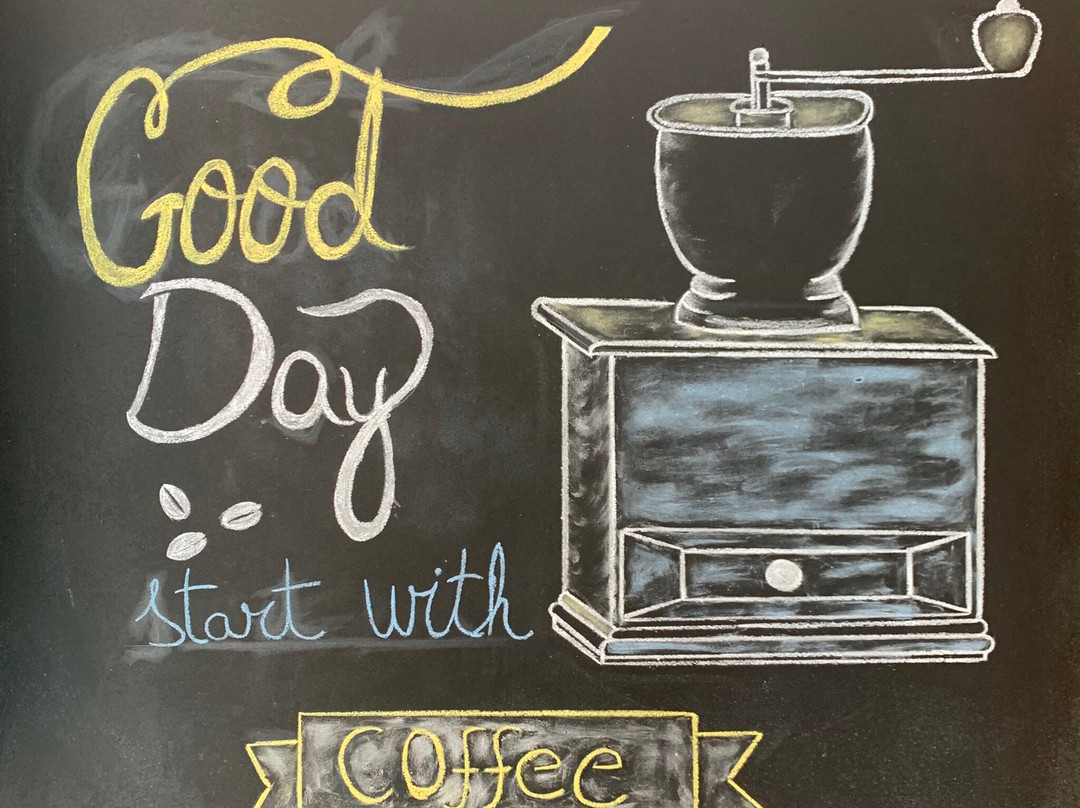 Good
Day
start with
Coffee